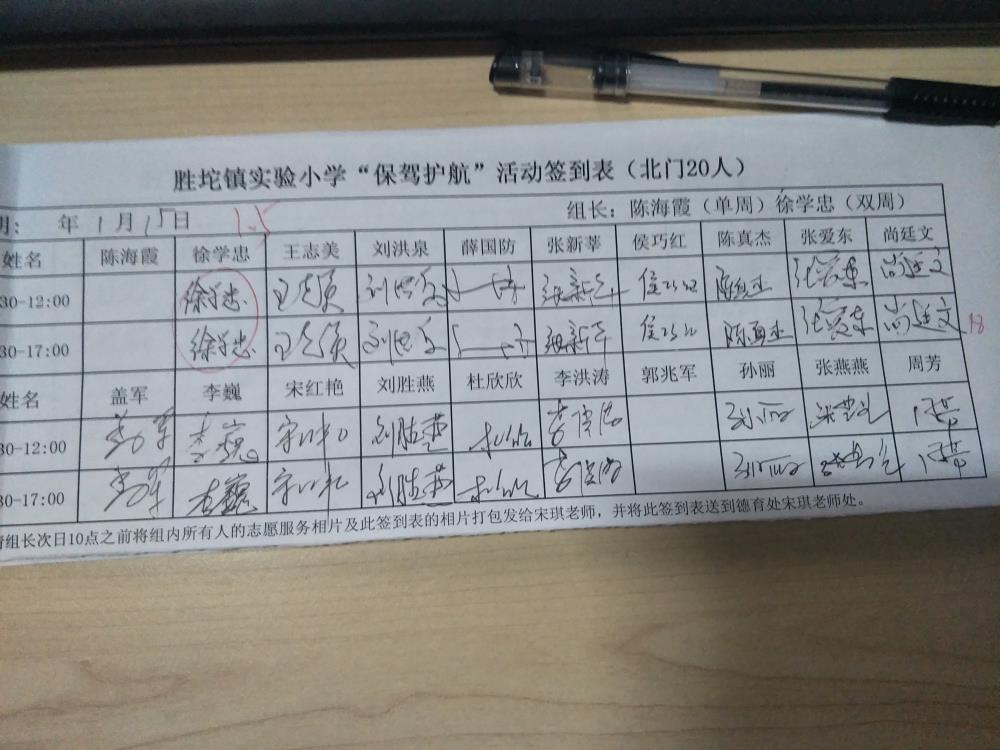 胜坨镇实验小学“保驾护航”活动签到表（北门20人）
期: 年 1 月 15 日 1.5 组长: 陈海霞（单周）徐学忠（双周）
姓名 陈海霞 徐学忠 王志美 刘洪泉 薛国防 张新莘 侯巧红 陈真杰 张爱东 尚廷文
30-12:00 徐学忠 侯巧红 陈真杰 张爱东 尚廷文
30-17:00 徐学忠 侯巧红 陈真杰 张爱东 尚廷文 18
姓名 盖军 李巍 宋红艳 刘胜燕 杜欣欣 李洪涛 郭兆军 孙丽 张燕燕 周芳
30-12:00 李巍 刘胜燕 李洪涛 孙丽
30-17:00 李巍 刘胜燕 李洪涛 孙丽
请组长次日10点之前将组内所有人的志愿服务相片及此签到表的相片打包发给宋琪老师，并将此签到表送到德育处宋琪老师处。